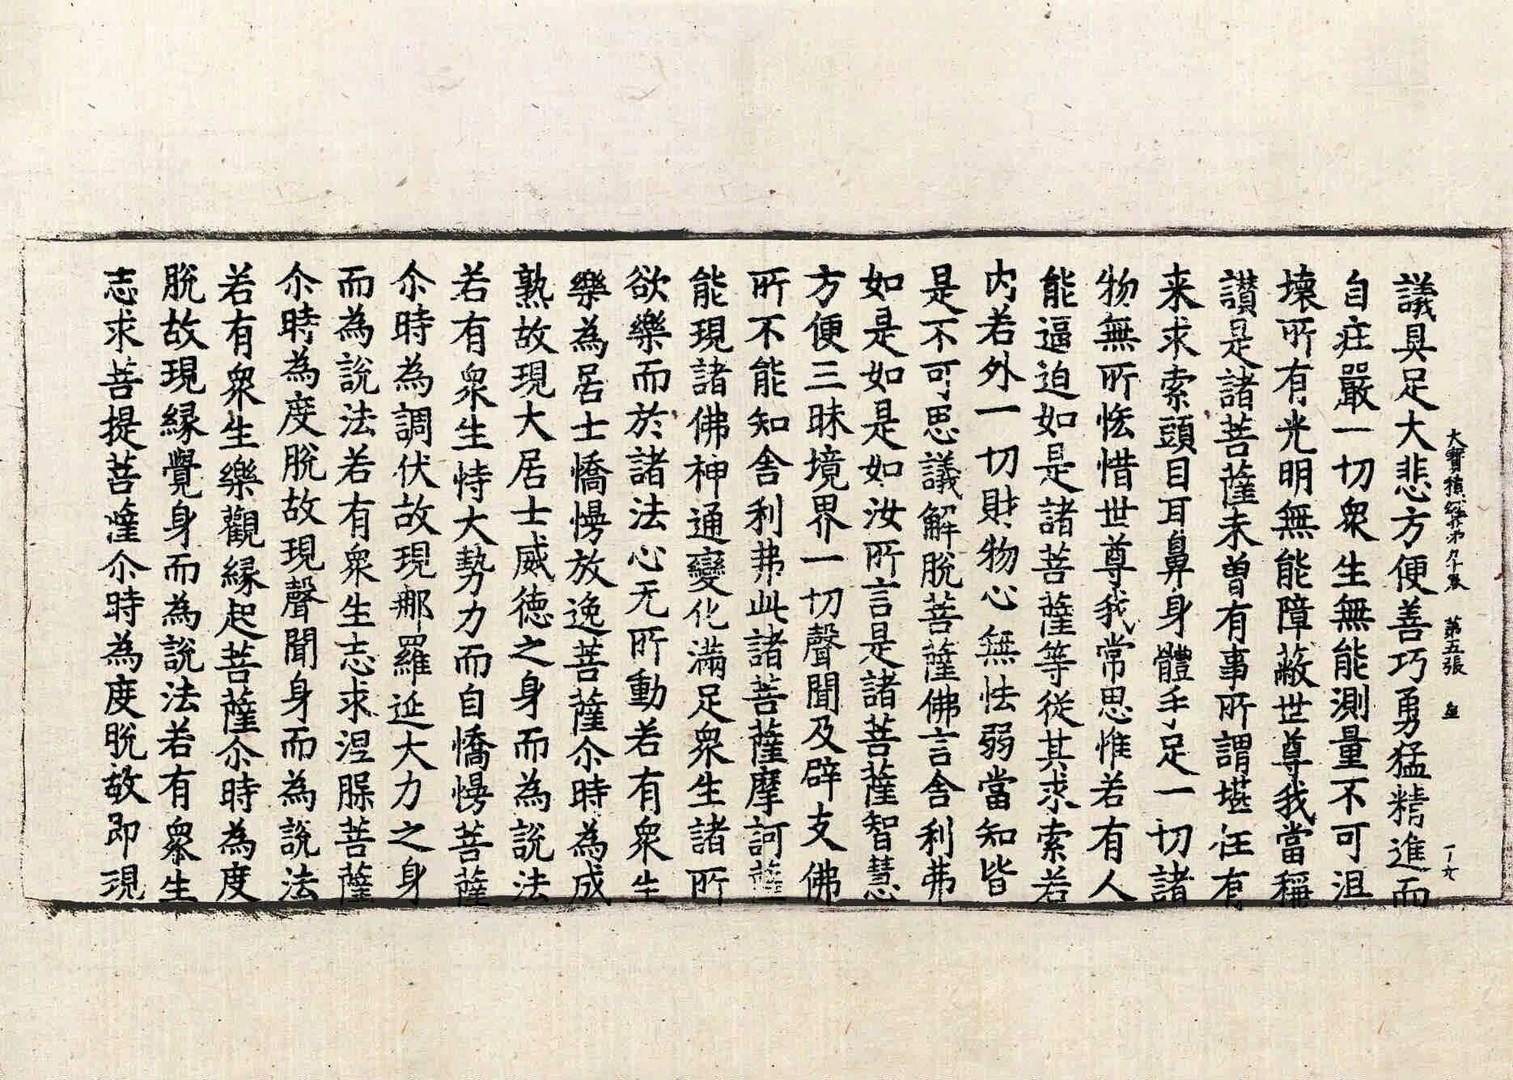 議具足大悲方便善巧勇猛精進而
自庄嚴一切衆生無能測量不可沮
壊所有光明無能障蔽世尊我當稱
讃是諸菩薩未曽有事所謂堪任有
来求索頭目耳鼻身體手足一切諸
物無所恡惜世尊我常思惟若有人
能逼迫如是諸菩薩等従其求索若
内若外一切財物心無怯弱當知皆
是不可思議解脫菩薩佛言舍利弗
如是如是如汝所言是諸菩薩智慧
方便三昧境界一切聲聞及辟支佛
所不能知舎利弗此諸菩薩摩訶薩
能現諸佛神通變化滿足衆生諸所
欲樂而於諸法心无所動若有衆生
樂為居士憍慢放逸菩薩尒時為成
熟故現大居士威徳之身而為說法
若有衆生恃大勢力而自憍慢菩薩
尒時為調伏故現那羅延大力之身
而為說法若有衆生志求涅槃菩薩
尒時為度脫故現聲聞身而為說法
若有衆生樂觀縁起菩薩尒時為度
脫故現縁覺身而為說法若有衆生
志求菩提菩薩尒時為度脫故即現
大寶積經第九十卷 第五張